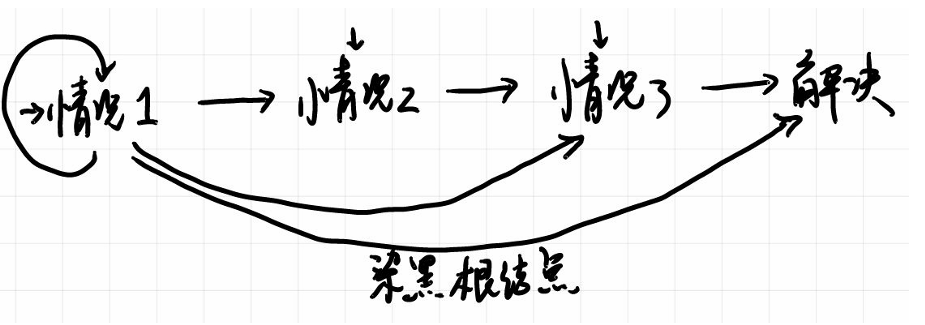 情况1 → 情况2 → 情况3 → 解决
染黑根结点